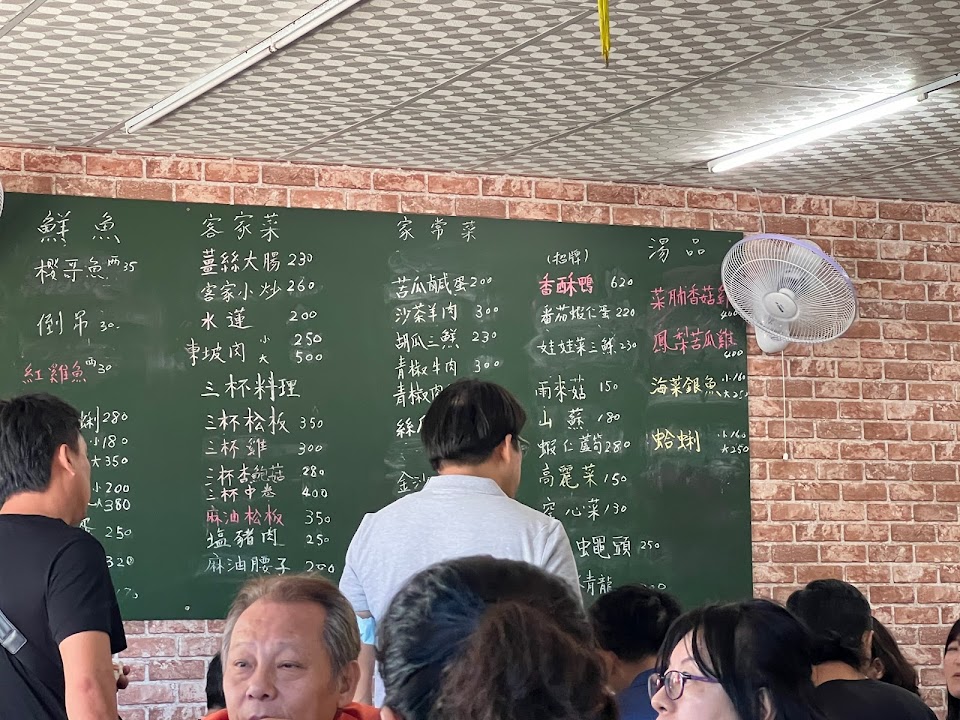 鮮魚
櫻哥魚 兩35
倒吊 30
紅雞魚 兩30
蜊280
小180
大350
小200
大380
250
320
客家菜
薑絲大腸 230
客家小炒 260
水蓮 200
東坡肉 小 250
大 500
三杯料理
三杯松板 350
三杯雞 300
三杯杏鮑菇 280
三杯中卷 400
麻油松板 350
塩豬肉 250
麻油腰子
家常菜
苦瓜鹹蛋 200
沙茶羊肉 300
胡瓜三鮮 230
青椒牛肉 300
青椒肉
絲
金沙
(招牌)
香酥鴨 620
番茄蝦仁蛋 220
娃娃菜三鮮 230
雨來菇 150
山蘇 180
蝦仁蘆筍 280
高麗菜 150
空心菜 130
虫黽頭 250
青龍
湯品
菜脯香菇
400
鳳梨苦瓜雞
400
海菜銀魚 小160
大250
蛤蜊 小160
大250